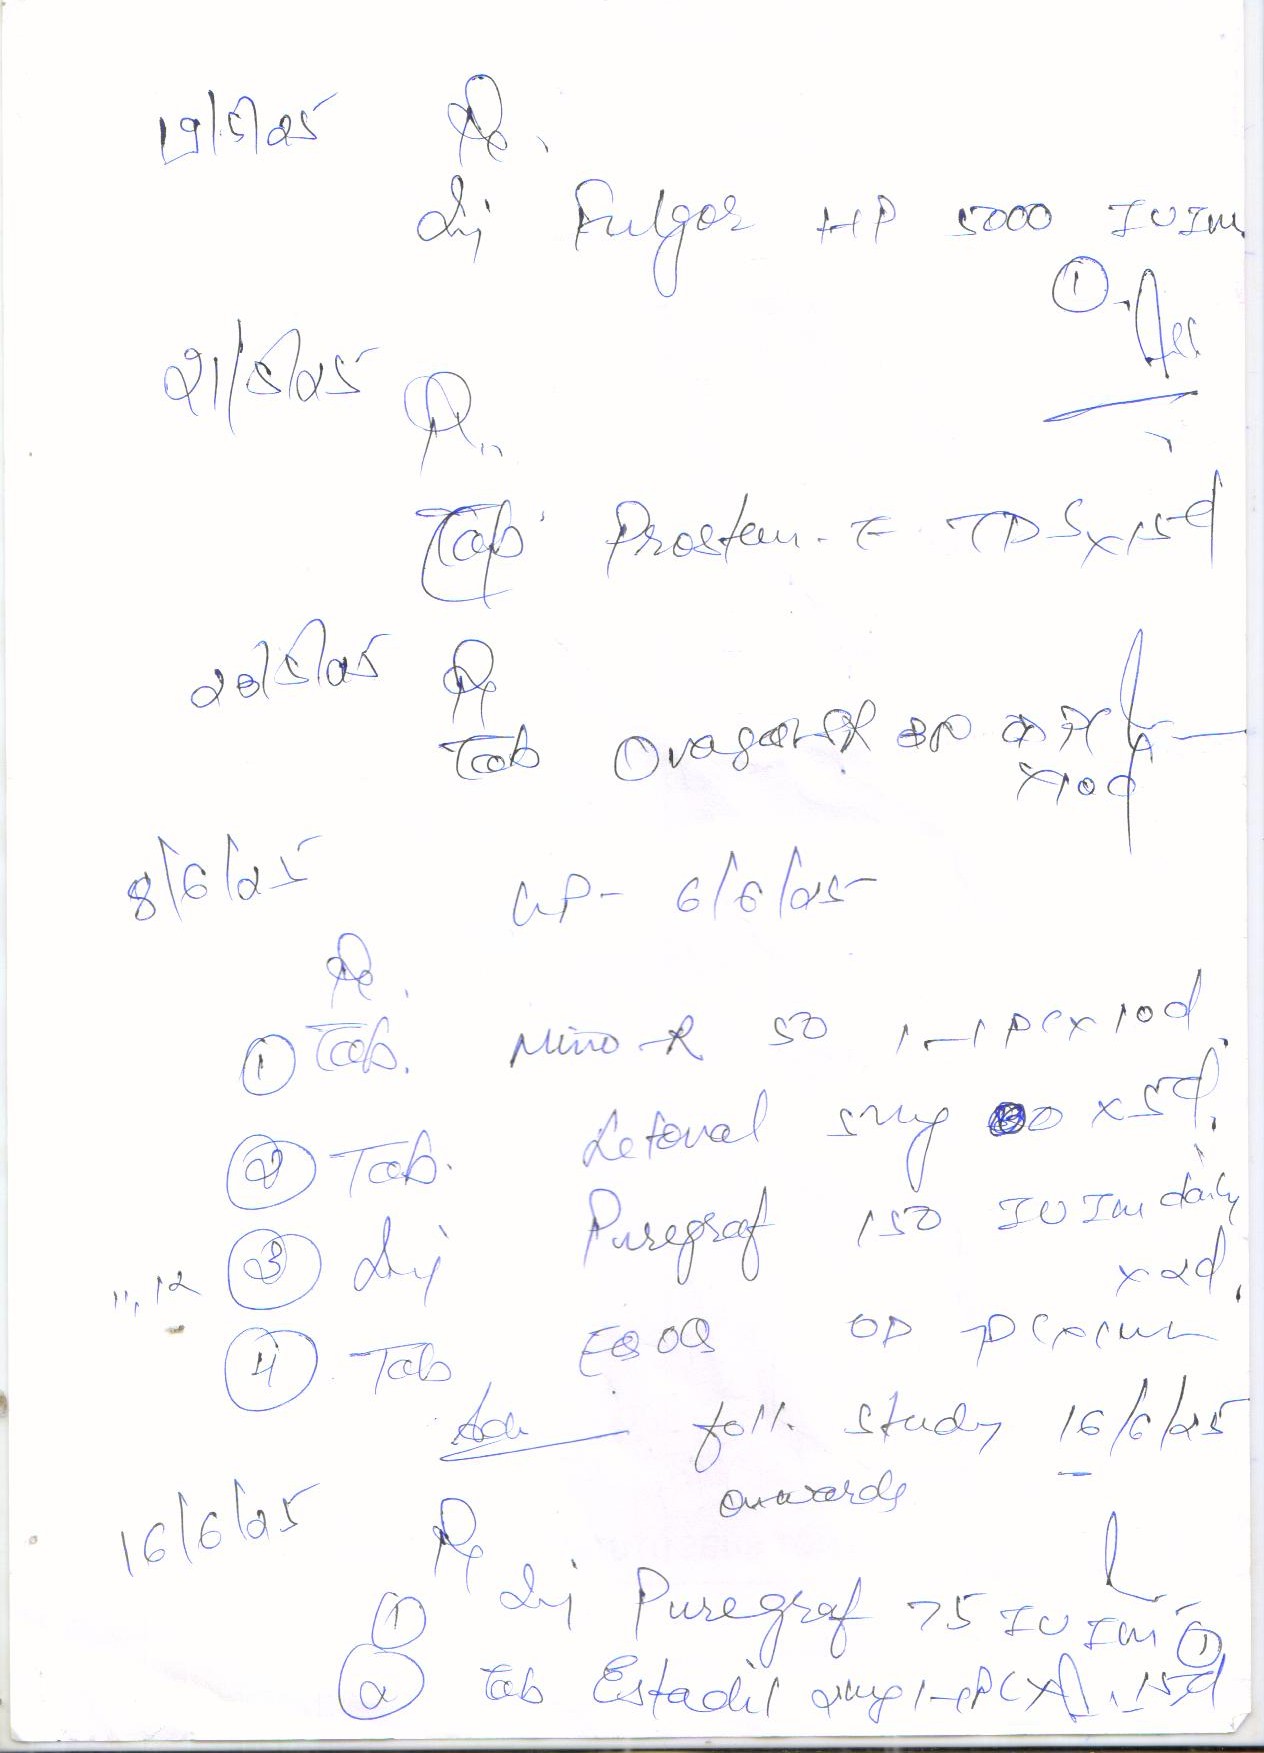 19/5/25 Rx.
Inj Fulgor HP 5000 IU Im
①
21/5/25
Rx
Tab. TDS x 15d
20/5/25 Rx
Tab
x10d
8/6/25 LMP- 6/6/25
Rx.
① Tab. 50 1-1 PC x 10d.
② Tab. Letoval 5mg OD x 5d.
③ Inj Puregraf 150 IU Im daily
11, 12 x 2d.
④ Tab OD PC x
Adv foll. study 16/6/25
onwards
16/6/25 Rx
① Inj Puregraf 75 IU Im ①
② Tab Estadil 2mg 1-1 PC x 15d